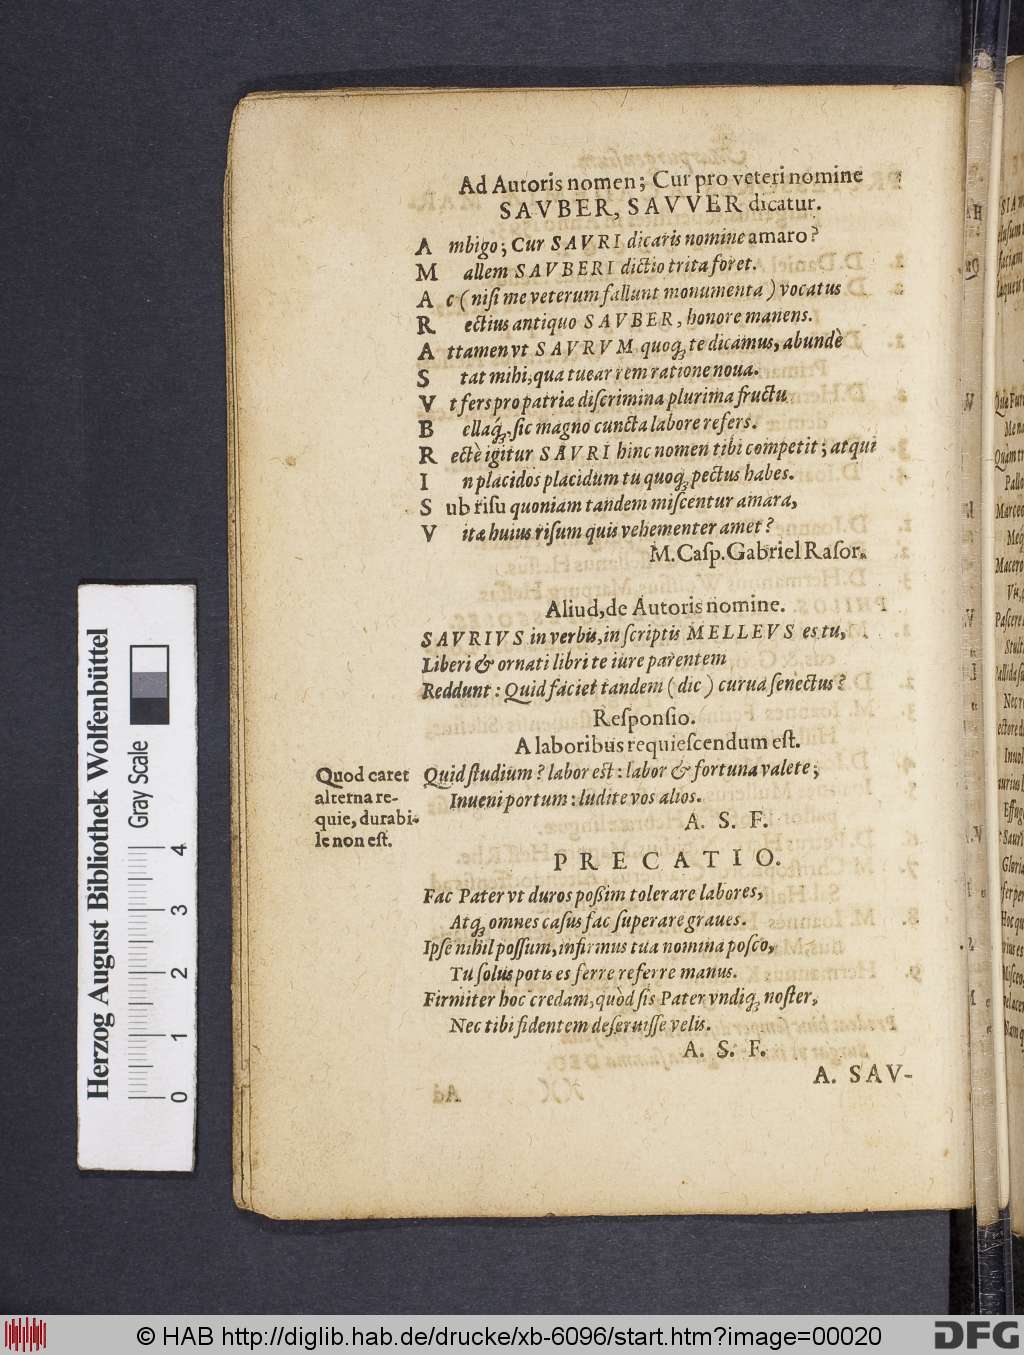 Ad Autoris nomen; Cur pro veteri nomine
SAVBER, SAVVER dicatur.
A mbigo; Cur SAVRI dicaris nomine amaro?
M allem SAVBERI dictio trita foret.
A c (nisi me veterum fallunt monumenta) vocatus
R ectius antiquo SAVBER, honore manens.
A ttamen vt SAVRVM quoq; te dicamus, abundè
S tat mihi, qua tuear rem ratione noua.
V t fers pro patria discrimina plurima fructu
B ellaq́;. sic magno cuncta labore refers.
R ectè igitur SAVRI hinc nomen tibi competit; atqui
I n placidos placidum tu quoq; pectus habes.
S ub risu quoniam tandem miscentur amara,
V itæ huius risum quis vehementer amet?
M. Casp. Gabriel Rasor.
Aliud, de Autoris nomine.
SAVRIVS in verbis, in scriptis MELLEVS es tu,
Liberi & ornati libri te iure parentem
Reddunt: Quid faciet tandem (dic) curua senectus?
Responsio.
A laboribus requiescendum est.
Quid studium? labor est: labor & fortuna valete;
Inueni portum: ludite vos alios.
A. S. F.
Quod caret
alterna re-
quie, durabi-
le non est.
PRECATIO.
Fac Pater vt duros possim tolerare labores,
Atq; omnes casus fac superare graues.
Ipse nihil possum, infirmus tua nomina posco,
Tu solus potis es ferre referre manus.
Firmiter hoc credam, quòd sis Pater vndiq; noster,
Nec tibi fidentem deseruisse velis.
A. S. F.
A. SAV-
Herzog August Bibliothek Wolfenbüttel
Gray Scale
0 1 2 3 4
© HAB http://diglib.hab.de/drucke/xb-6096/start.htm?image=00020
DFG